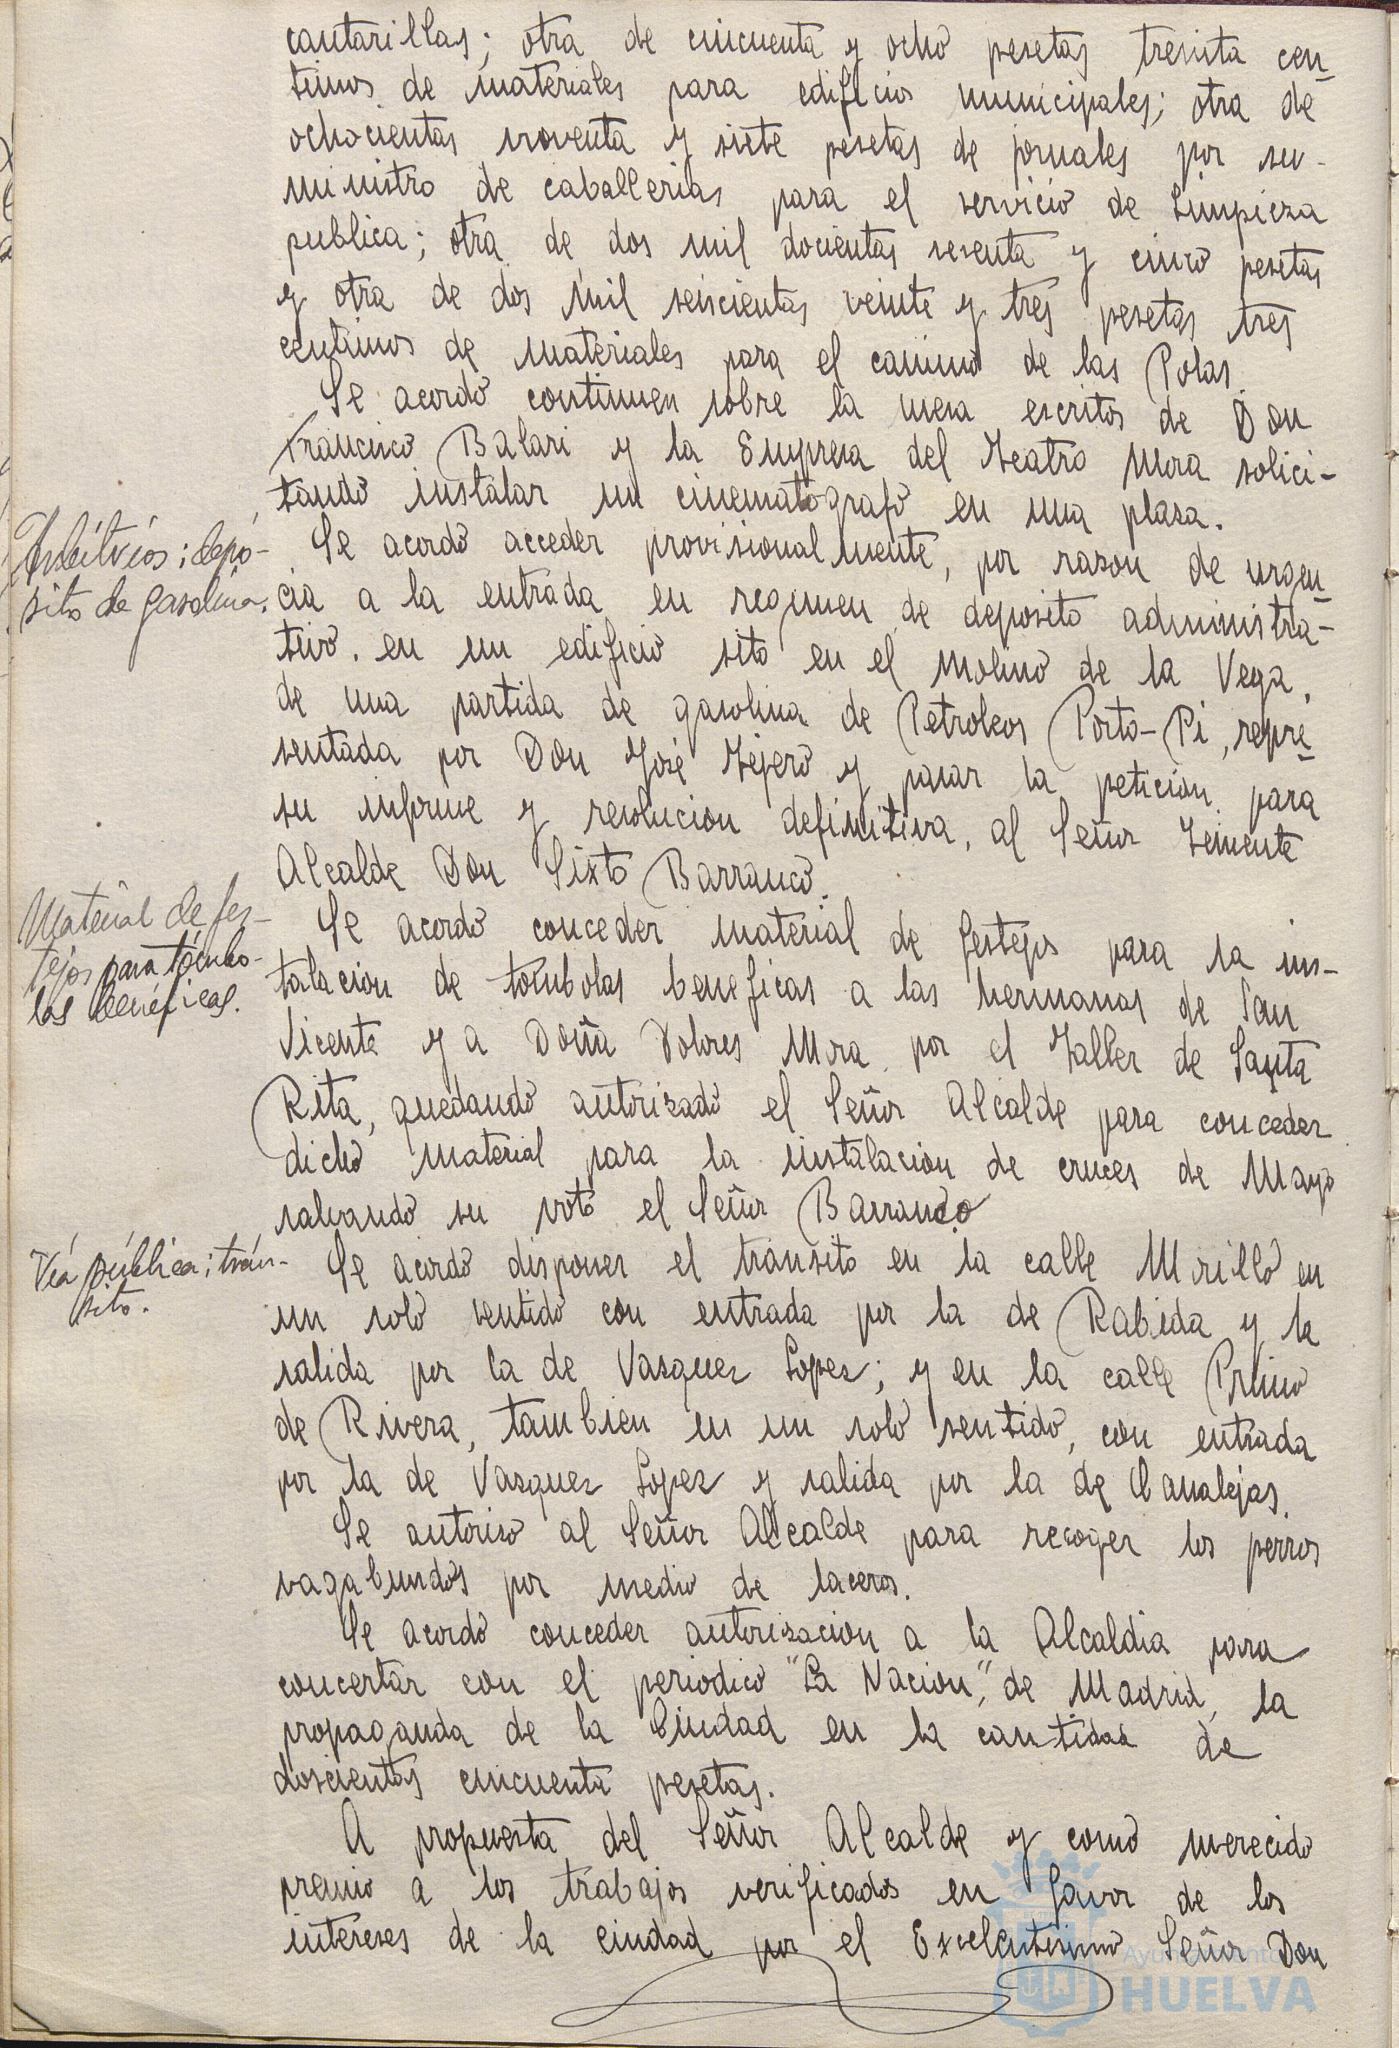 cantarillas; otra de cincuenta y ocho pesetas treinta cen-
timos de materiales para edificios municipales; otra de
ochocientas noventa y siete pesetas de jornales por su-
ministro de caballerias para el servicio de Limpieza
publica; otra de dos mil docientas sesenta y cinco pesetas
y otra de dos mil seiscientas veinte y tres pesetas tres
centimos de materiales para el camino de las Polas.
Se acordó continuen sobre la mesa escritos de Don
Francisco Balari y la Empresa del Teatro Mora solici-
tando instalar un cinematografo en una plaza.
Arbitrios; depó-
sito de gasolina.
Se acordó acceder provisionalmente, por razon de urgen-
cia a la entrada en regimen de deposito administra-
tivo, en un edificio sito en el Molino de la Vega,
de una partida de gasolina de Petroleos Porto-Pi, repre-
sentada por Don José Tejero y pasar la peticion para
su informe y resolucion definitiva, al Señor Teniente
Alcalde Don Sixto Barranco.
Material de fes-
tejos para tómbo-
las benéficas.
Se acordó conceder material de festejos para la ins-
talacion de tombolas beneficas a las hermanas de San
Vicente y a Doña Dolores Mora por el Taller de Santa
Rita, quedando autorizado el Señor Alcalde para conceder
dicho material para la instalacion de cruces de Mayo
salvando su voto el Señor Barranco
Vía pública; trán-
sito.
Se acordó disponer el transito en la calle Murillo en
un solo sentido con entrada por la de Rabida y la
salida por la de Vasquez Lopez; y en la calle Primo
de Rivera, tambien en un solo sentido, con entrada
por la de Vasquez Lopez y salida por la de Canalejas.
Se autorizó al Señor Alcalde para recoger los perros
vagabundos por medio de laceros.
Se acordó conceder autorizacion a la Alcaldia para
concertar con el periodico "La Nacion," de Madrid, la
propaganda de la Ciudad en la cantidad de
doscientas cincuenta pesetas.
A propuesta del Señor Alcalde y como merecido
premio a los trabajos verificados en favor de los
intereses de la ciudad por el Excelentisimo Señor Don
Ayuntamiento
HUELVA